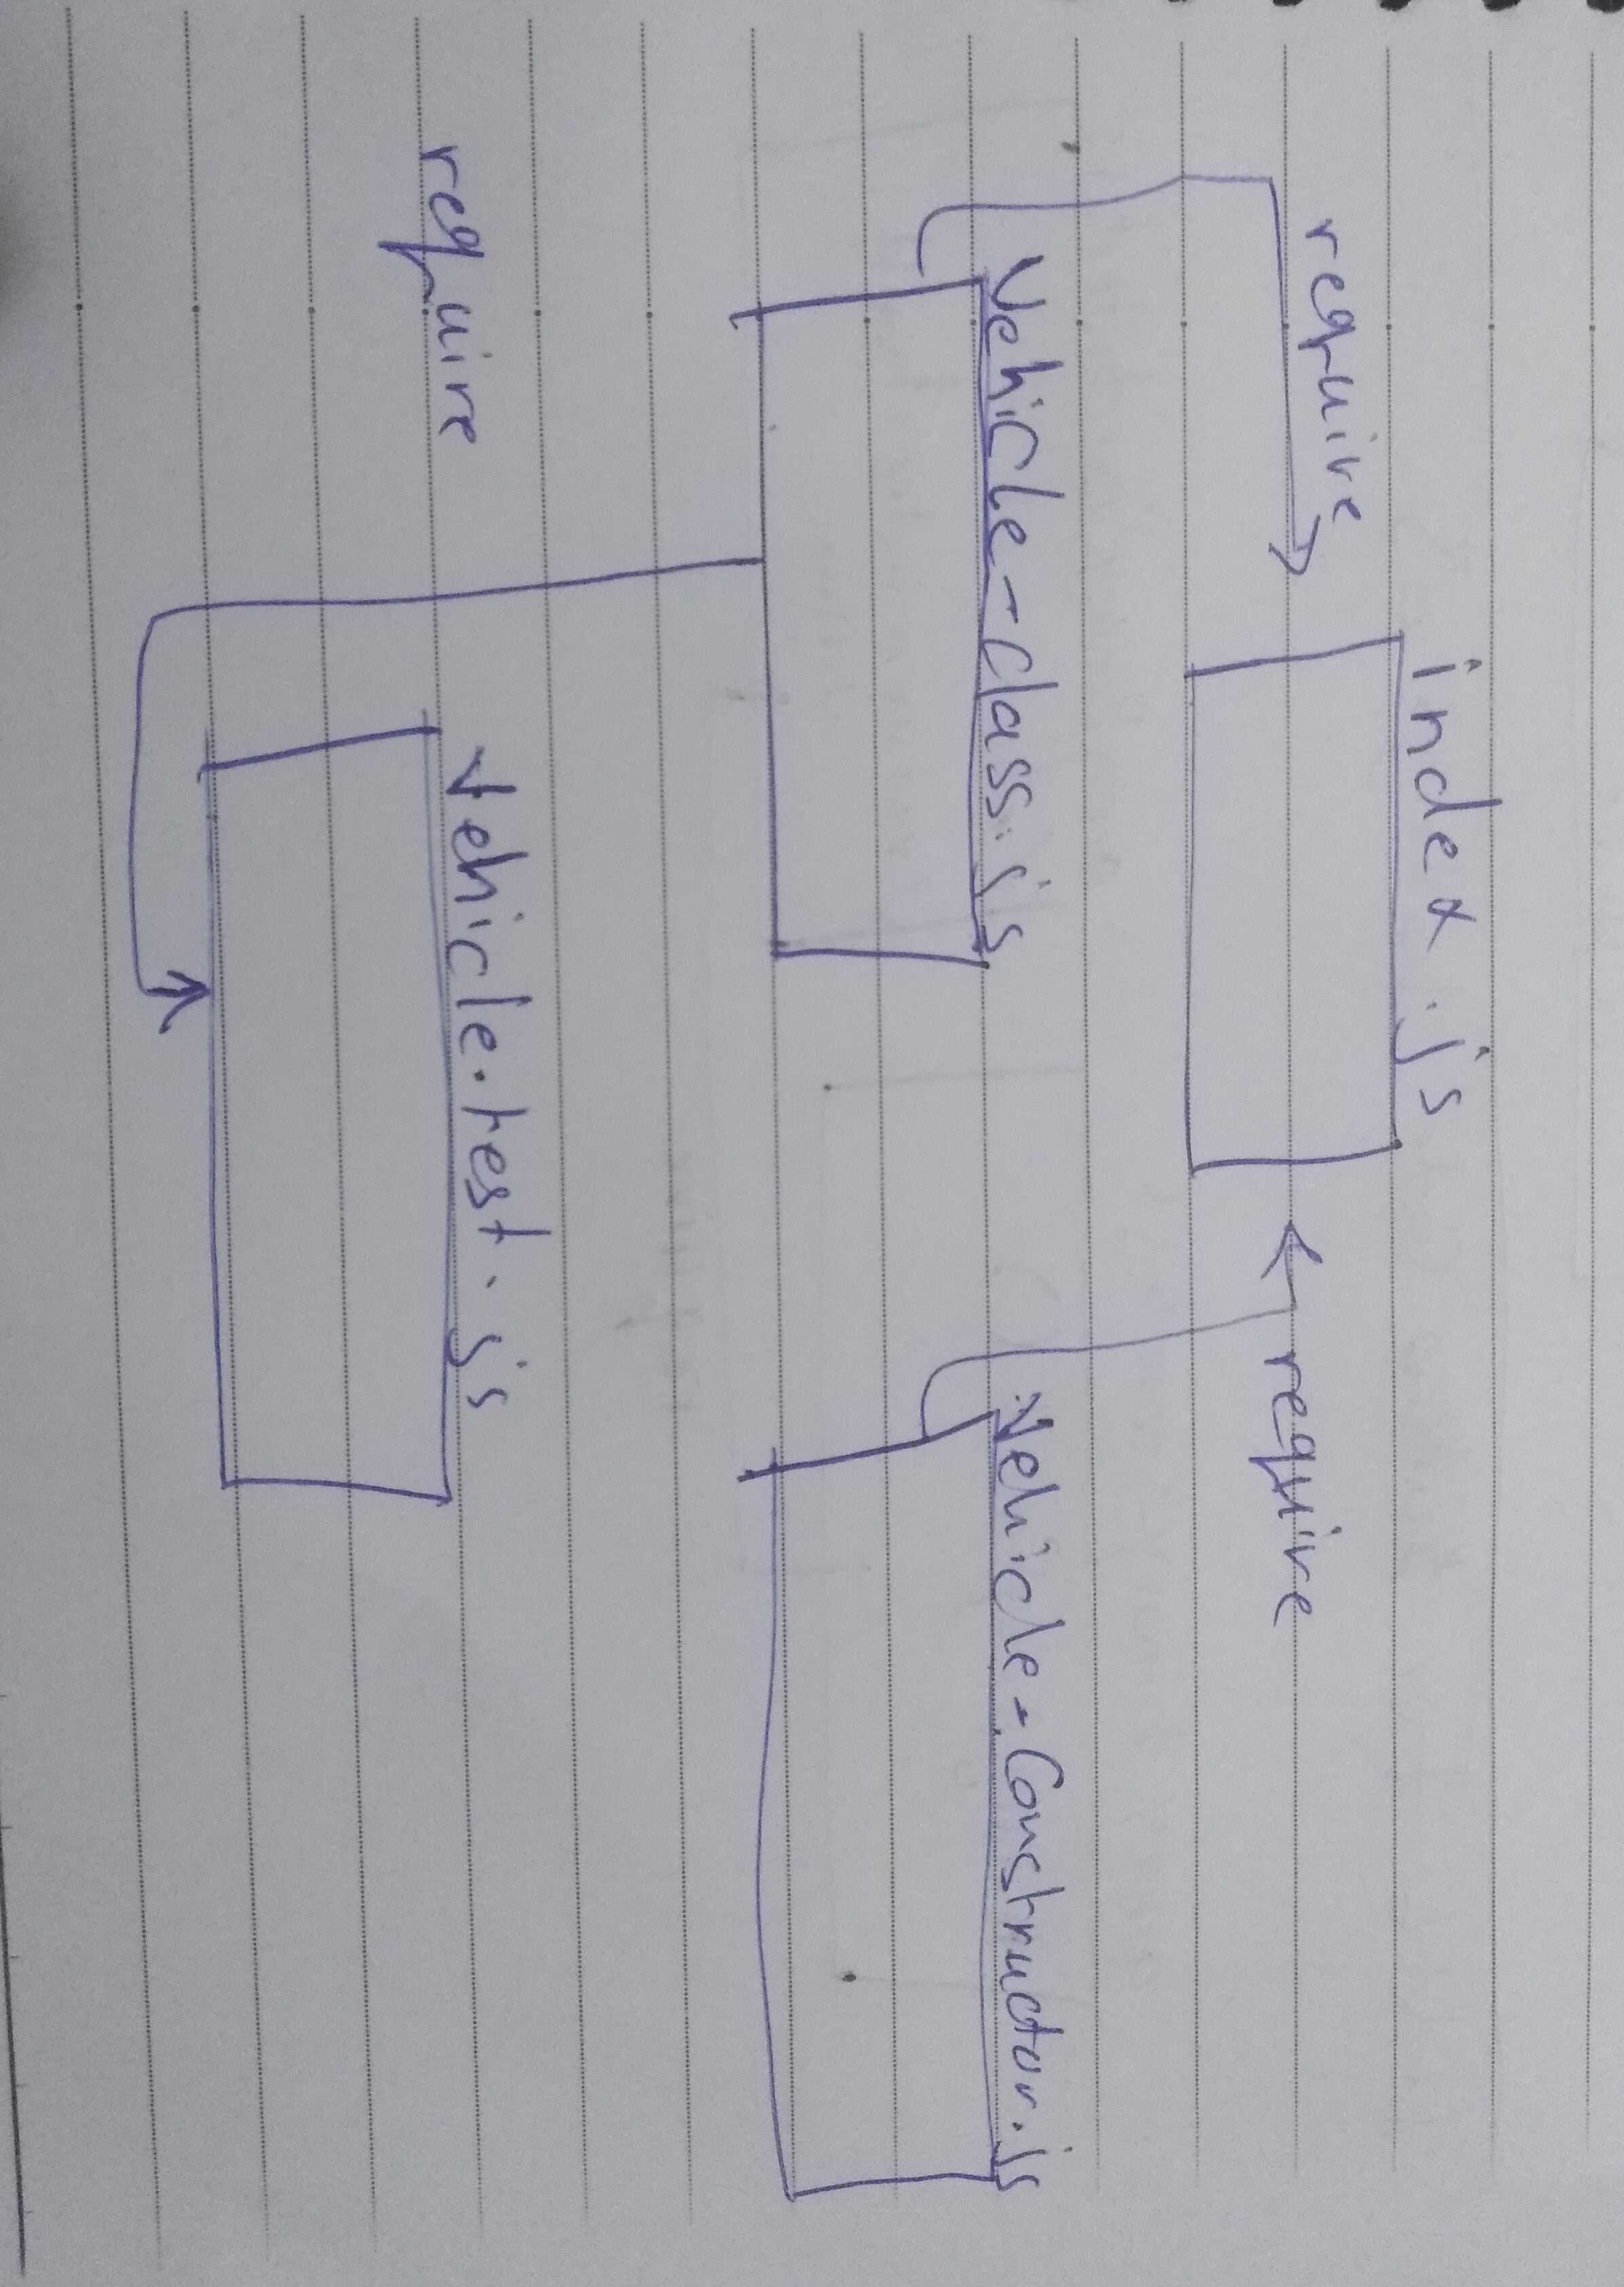 index.js
require
require
Vehicle-class.js
Vehicle-Constructor.js
require
Vehicle.test.js